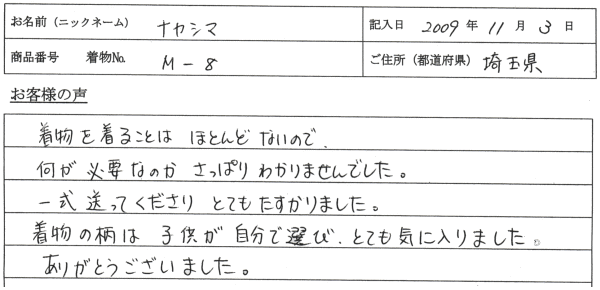 お名前（ニックネーム） ナカシマ 記入日 2009 年 11 月 3 日
商品番号 着物No. M-8 ご住所（都道府県） 埼玉県
お客様の声
着物を着ることは ほとんどないので、
何が必要なのか さっぱりわかりませんでした。
一式送ってくださり とてもたすかりました。
着物の柄は 子供が自分で選び、とても気に入りました。
ありがとうございました。